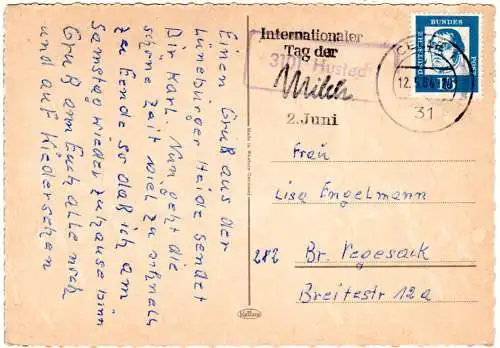 Einen Gruß aus der
Lüneburger Heide sendet
Dir Karl. Nun geht die
schöne Zeit viel zu schnell
zu Ende so daß ich am
Samstag wieder zuhause bin
Gruß an Euch alle noch
und auf Wiedersehen
Internationaler
Tag der
Milch
2. Juni
3101 Hustedt
CELLE
12.5.64
31
DEUTSCHE
BUNDES
POST
Frau
Lisa Engelmann
282 Br. Vegesack
Breitestr 12a
Made in Western Germany